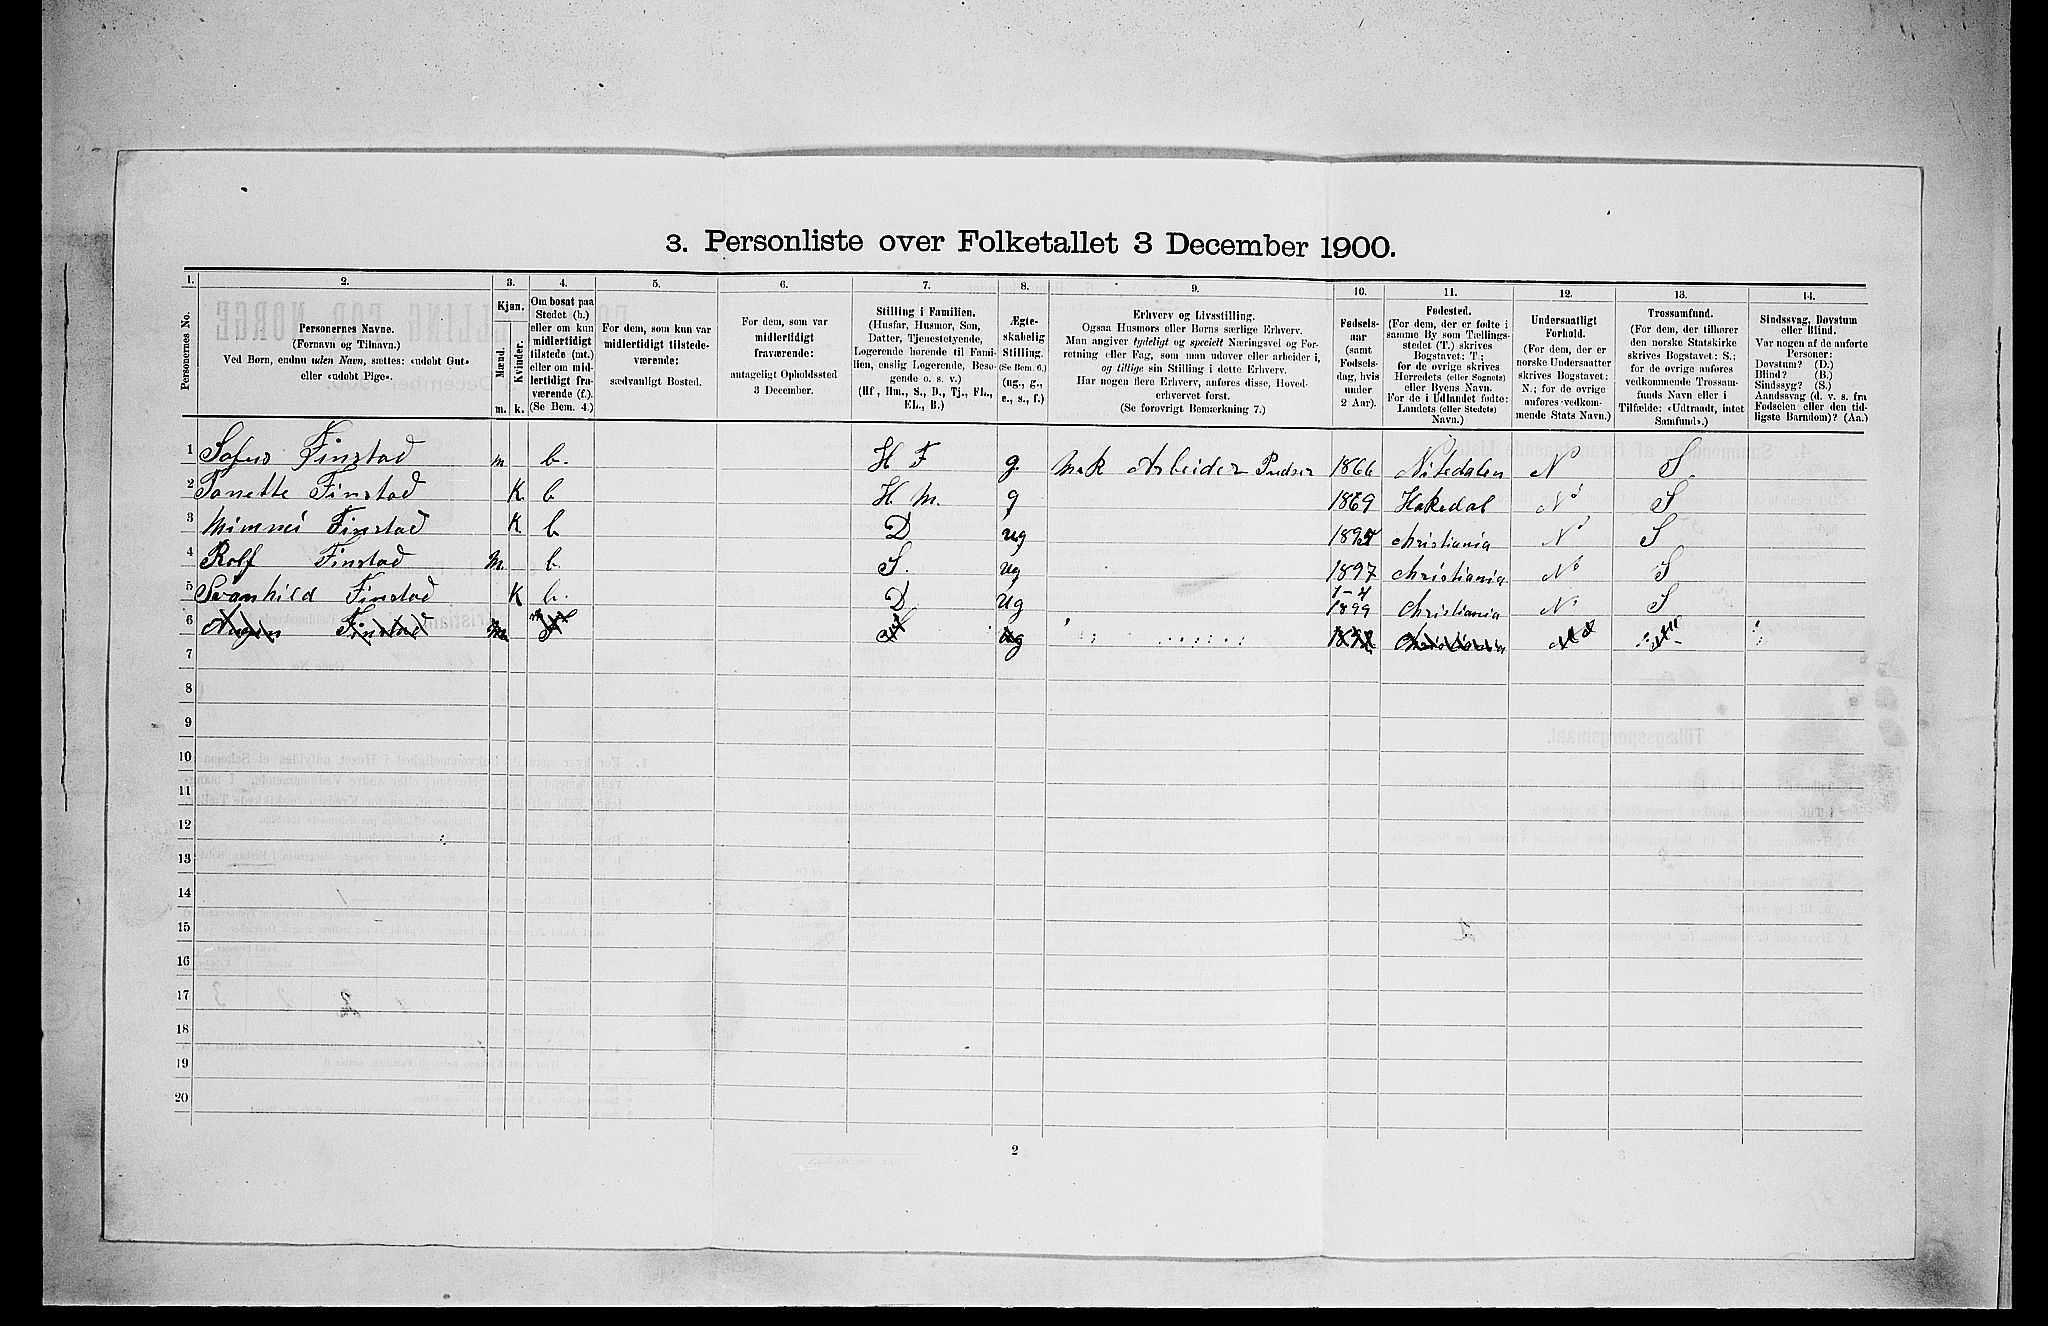 3. Personliste over Folketallet 3 December 1900.
1. 2. 3. 4. 5. 6. 7. 8. 9. 10. 11. 12. 13. 14.
Personernes No.
Personernes Navne.
(Fornavn og Tilnavn.)
Ved Børn, endnu uden Navn, sættes: «udøbt Gut»
eller «udøbt Pige».
Kjøn.
Mænd.
Kvinder.
m. k.
Om bosat paa
Stedet (b.)
eller om kun
midlertidigt
tilstede (mt.)
eller om mid-
lertidigt fra-
værende (f.).
(Se Bem. 4.)
For dem, som kun var
midlertidigt tilstede-
værende:
sædvanligt Bosted.
For dem, som var
midlertidigt
fraværende:
antageligt Opholdssted
3 December.
Stilling i Familien.
(Husfar, Husmor, Søn,
Datter, Tjenestetyende,
Logerende hørende til Fami-
lien, enslig Logerende, Besø-
gende o. s. v.)
(Hf., Hm., S., D., Tj., FL.,
EL., B.)
Ægte-
skabelig
Stilling.
(Se Bem. 6.)
(ug., g.,
e., s., f.)
Erhverv og Livsstilling.
Ogsaa Husmors eller Børns særlige Erhverv.
Man angiver tydeligt og specielt Næringsvei og For-
retning eller Fag, som man udøver eller arbeider i,
og tillige sin Stilling i dette Erhverv.
Har nogen flere Erhverv, anføres disse, Hoved-
erhvervet først.
(Se forøvrigt Bemærkning 7.)
Fødsels-
aar
(samt
Fødsels-
dag, hvis
under
2 Aar).
Fødested.
(For dem, der er fødte i
samme By som Tællings-
stedet (T.) skrives
Bogstavet: T;
for de øvrige skrives
Herredets (eller Sognets)
eller Byens Navn.
For de i Udlandet fødte:
Landets (eller Stedets)
Navn.)
Undersaatligt
Forhold.
(For dem, der er
norske Undersaatter
skrives Bogstavet:
N.; for de øvrige
anføres vedkom-
mende Stats Navn.)
Trossamfund.
(For dem, der tilhører
den norske Statskirke
skrives Bogstavet: S.;
for de øvrige anføres
vedkommende Trossam-
funds Navn eller i
Tilfælde: «Udtraadt, intet
Samfund».)
Sindssvag, Døvstum
eller Blind.
Var nogen af de anførte
Personer:
Døvstum? (D.)
Blind? (B.)
Sindssyg? (S.)
Aandssvag (d. v. s. fra
Fødselen eller den tid-
ligste Barndom)? (Aa.)
1 Sofus Finstad m b. H F g. Mek Arbeider Pudser 1866 Nitedalen N S
2 Tanette Finstad K b H m. g 1869 Hakedal N S
3 Finstad K b D ug Christiania N S
4 Rolf Finstad m. b. S. ug 1897 Christiania N S
5 Svanhild Finstad K b. D ug 1-4 1899 Christiania N S
6 Finstad m ug Christiania
7
8
9
10
11
12
13
14
15
16
17
18
19
20
2